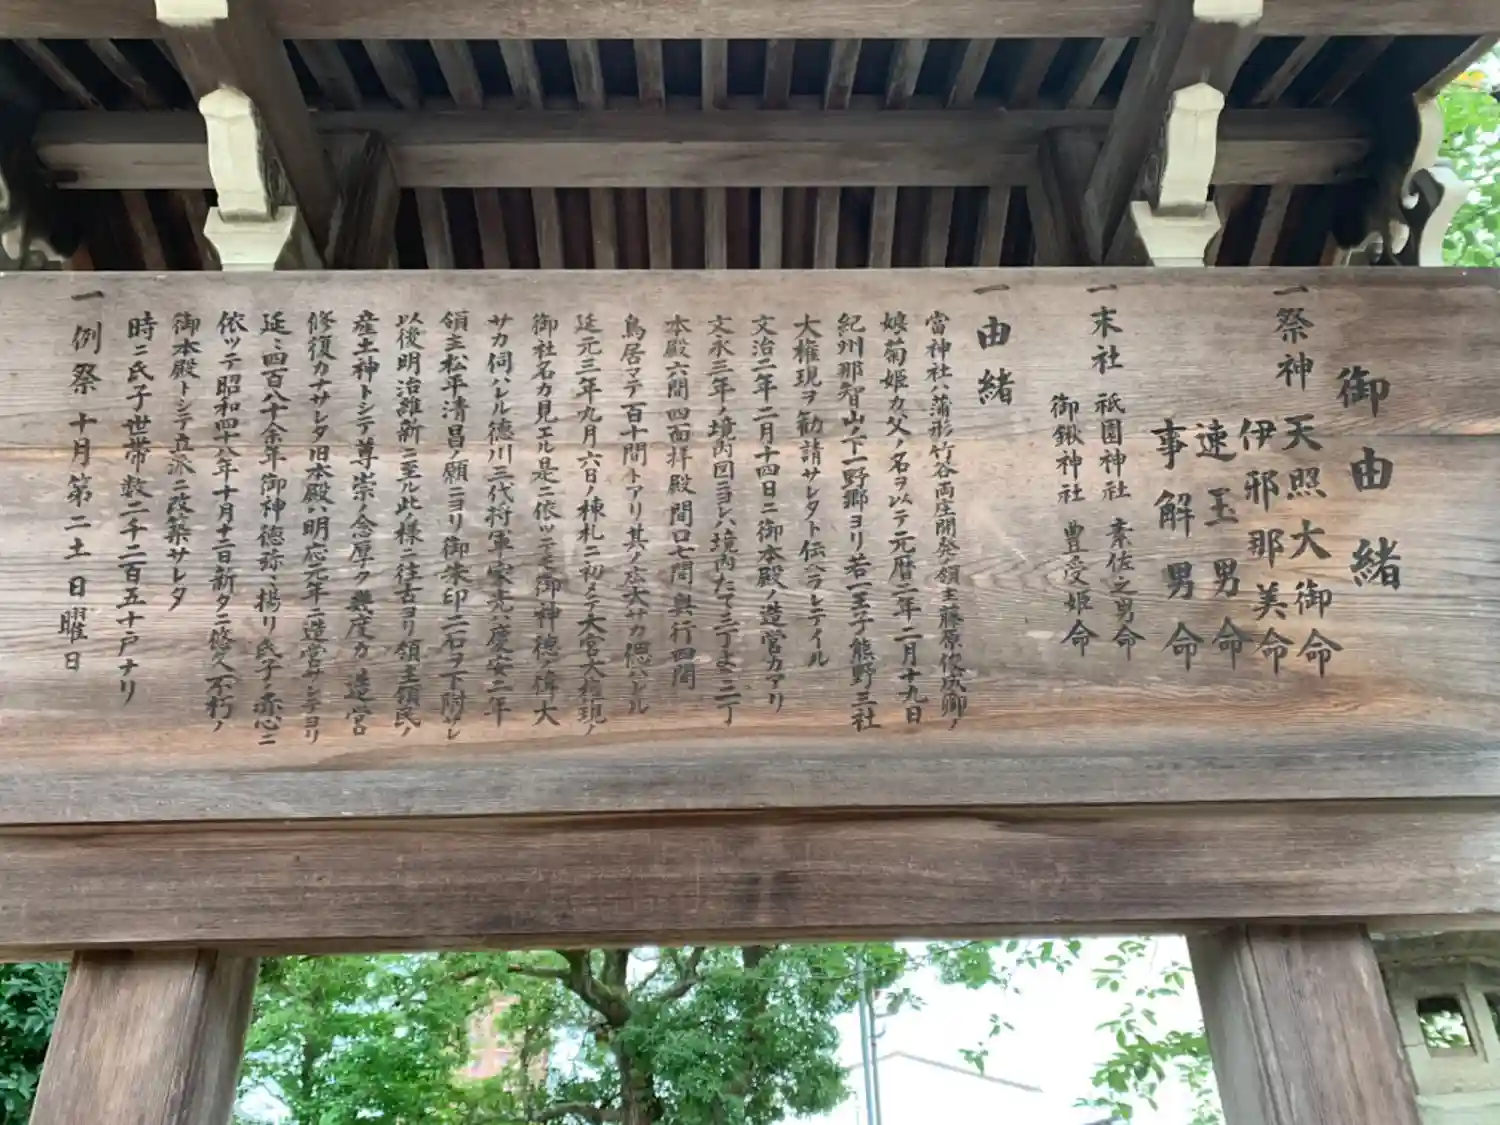 御由緒
一祭神 天照大御命
伊邪那美命
速玉男命
事解男命
一末社 祇園神社 素佐之男命
御鍬神社 豊受姫命
一由緒
當神社ハ蒲形竹谷両庄開発ノ領主藤原俊成卿ノ
娘菊姫カ父ノ名ヲ以テ元暦二年二月十九日
紀州那智山ノ下一野郷ヨリ若一王子熊野三社
大権現ヲ勧請サレタト伝ヘラレテイル
文治二年二月十四日ニ御本殿ノ造営カアリ
文永三年ノ境内図ニヨレハ境内たて三丁よこ二丁
本殿六間四面拝殿間口七間奥行四間
鳥居マテ百十間トアリ其ノ広大サカ偲ハレル
延元三年九月六日ノ棟札ニ初メテ大宮大権現ノ
御社名カ見エル是ニ依ツテモ御神徳ノ偉大
サカ伺ハレル徳川三代将軍家光ハ慶安二年
領主松平清昌ノ願ニヨリ御朱印二石ヲ下附サレ
以後明治維新ニ至ル此様ニ往古ヨリ領主領民ノ
産土神トシテ尊崇ノ念厚ク幾度カノ造営ロ
修復カナサレタ旧本殿ハ明応元年ニ造営サレテヨリ
延々四百八十余年御神徳弥々揚リ氏子ノ赤心ニ
依ツテ昭和四十八年十月十二日新タニ悠久不朽ノ
御本殿トシテ立派ニ改築サレタ
時ニ氏子世帯数二千二百五十戸ナリ
一例祭 十月第二土日曜日